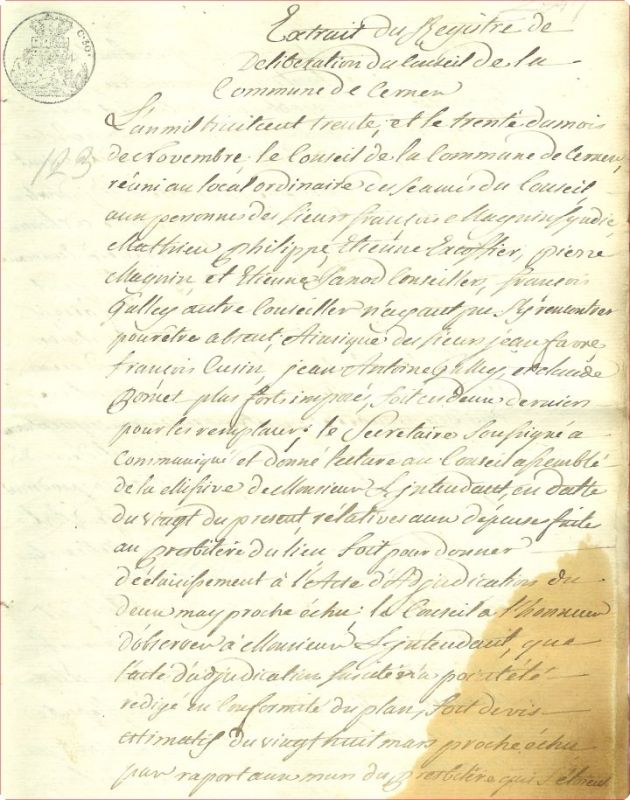 Extrait du Registre de
Deliberation du Conseil de la
Commune de Cernex
L'an mil huit cent trente, et le trente du mois
de Novembre, le Conseil de la Commune de Cernex,
123
réuni au local ordinaire des seances du Conseil
aux personnes des sieurs françois Magnin syndic,
Mathieu philippe Etienne Excoffier, pierre
Magnin, et Etienne Conseillers, françois
Gulley autre Conseiller n'ayant pu s'y rencontrer
pour être absent, Ainsi que des sieurs jean favre
françois Cusin, jean Antoine Gulley, et claude
plus forts imposés, soit ces deux derniers
pour les remplacer; le Secretaire Soussigné a
Communiqué et donné lecture au Conseil assemblé
de la Missive de Monsieur L'intendant, en datte
du vingt du present, rélatives aux dépense faite
au presbitère du lieu Soit pour donner
déclaissement à l'Acte d'Adjudication du
deux may proche échu; le Conseil a l'honneur
d'observer à Monsieur L'intendant, que
l'acte d'adjudication susdité n'a point été
redigé en Conformité du plan, Soit devis
estimatif du vingt huit mars proche échu
par raport aux murs du presbitère qui